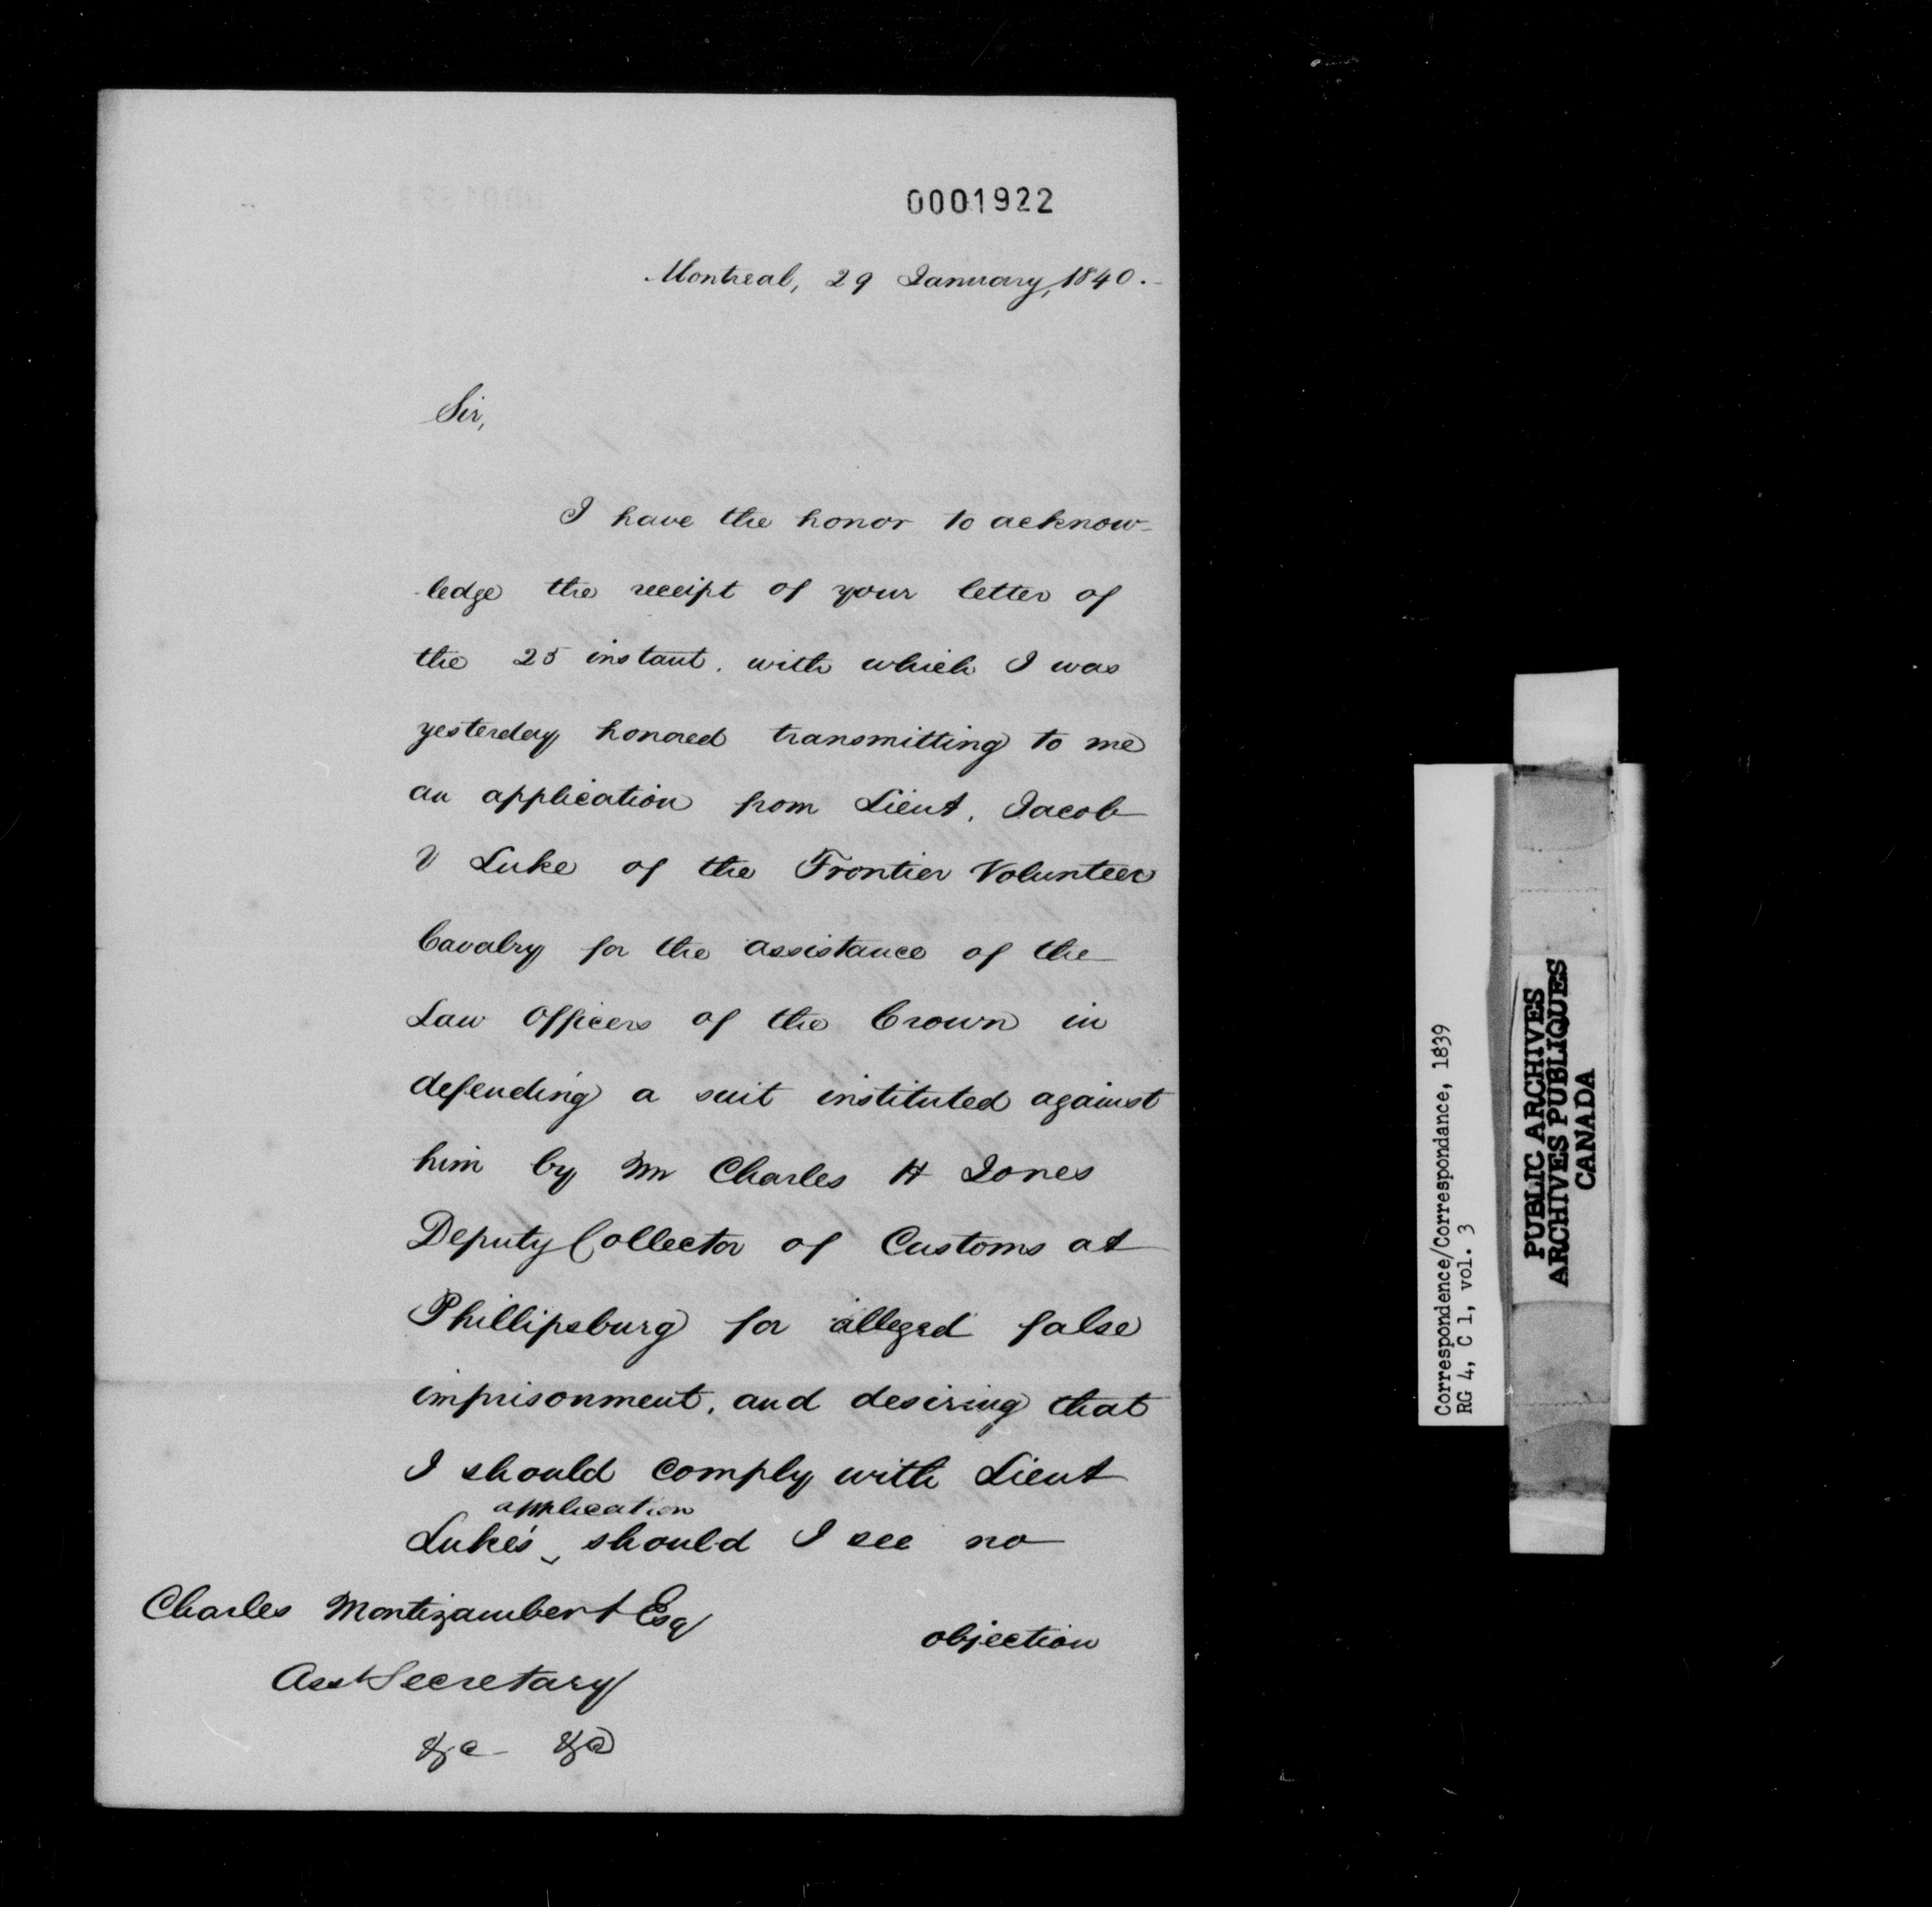 0001922
Montreal, 29 January, 1840.
Sir,
I have the honor to acknow-
ledge the receipt of your letter of
the 25 instant, with which I was
yesterday honored transmitting to me
an application from Lieut. Jacob
V Luke of the Frontier Volunteer
Cavalry for the assistance of the
Law Officers of the Crown in
defending a suit instituted against
him by Mr Charles H Jones
Deputy Collector of Customs at
Phillipsburg for alleged false
imprisonment, and desiring that
I should comply with Lieut
application
Luke's should I see no
Charles Montizambert Esq
objection
Asst Secretary
&c &c
Correspondence/Correspondance, 1839
RG 4, C 1, vol. 3
PUBLIC ARCHIVES
ARCHIVES PUBLIQUES
CANADA